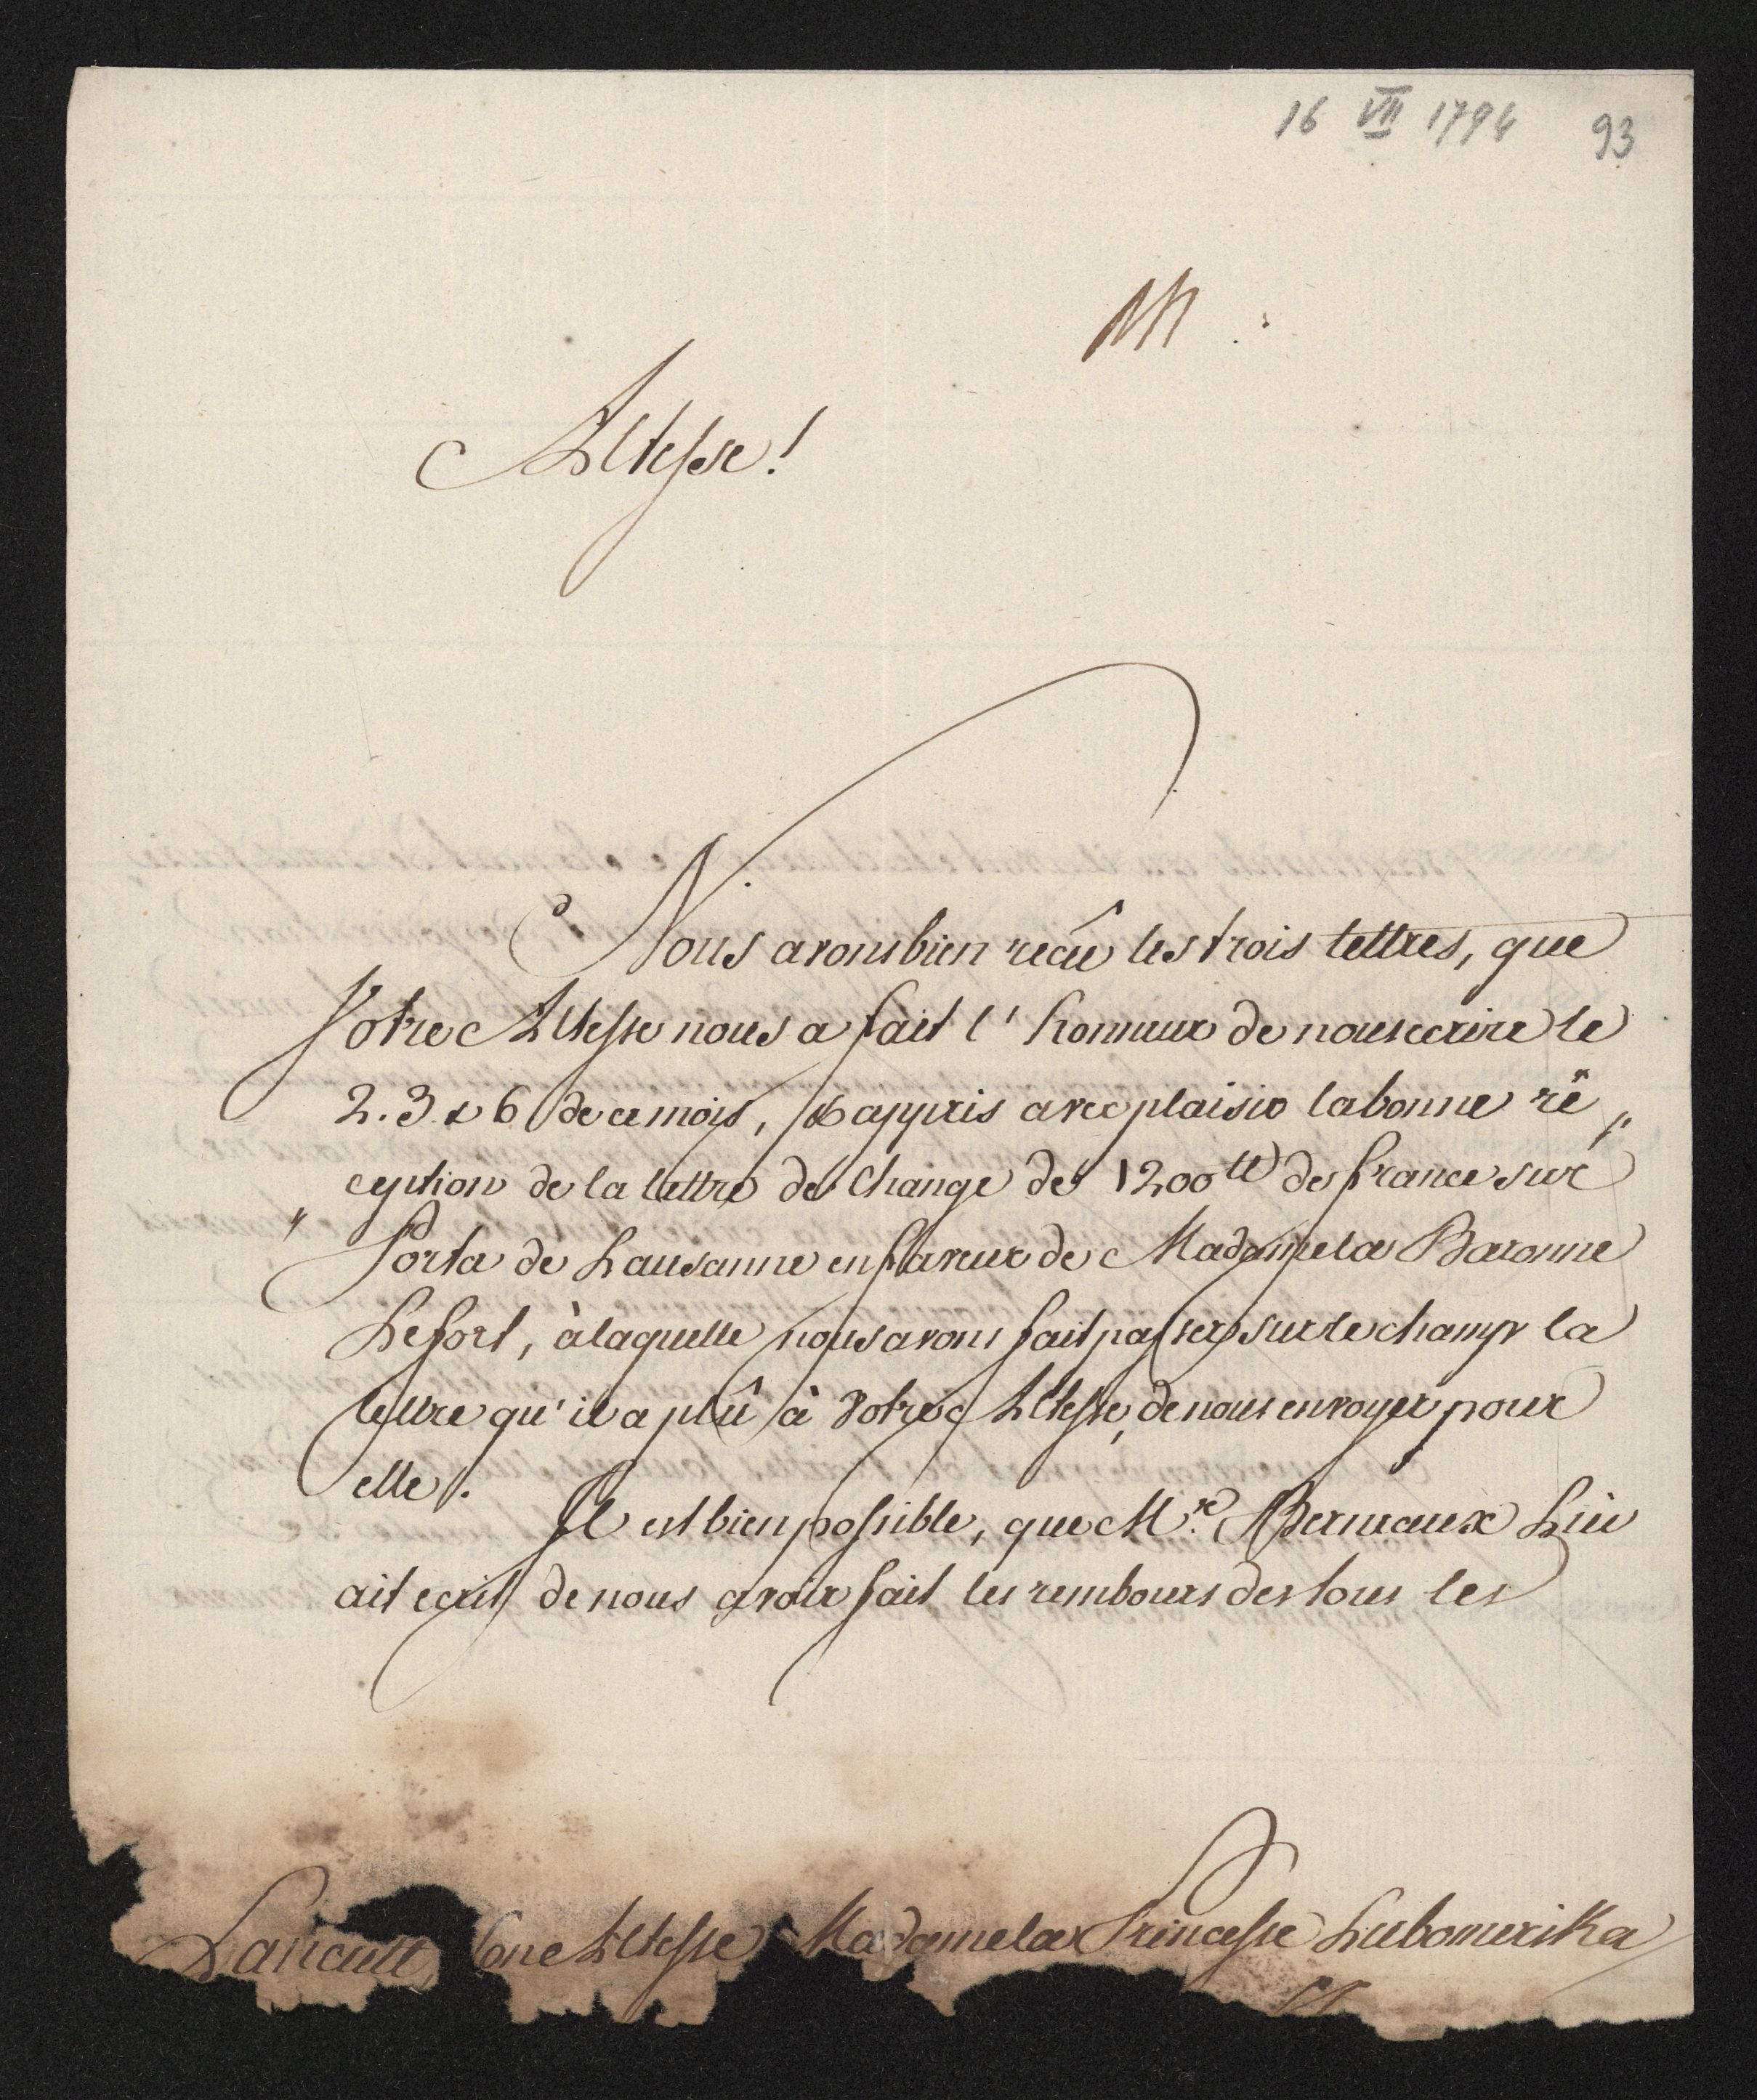 16 VII 1794 93
Altesse!
Nous avons bien reçû les trois lettres, que
Votre Altesse nous a fait l'honneur de nous ecrire le
2. 3 & 6 de ce mois, & appris avec plaisir la bonne ré„
„ception de la lettre de Change de 1200 tt de france sur
Porta de Lausanne en faveur de Madame la Baronne
Lefort, à laquelle nous avons fait passer sur le champ la
lettre qu'il a plû à Votre Altesse, de nous envoyer pour
elle.
Il est bien possible, que Mr. Bernaux Lui
ait ecrit de nous avoir fait les rembours des tous les
Lancut Son Altesse Madame la Princesse Lubomirska